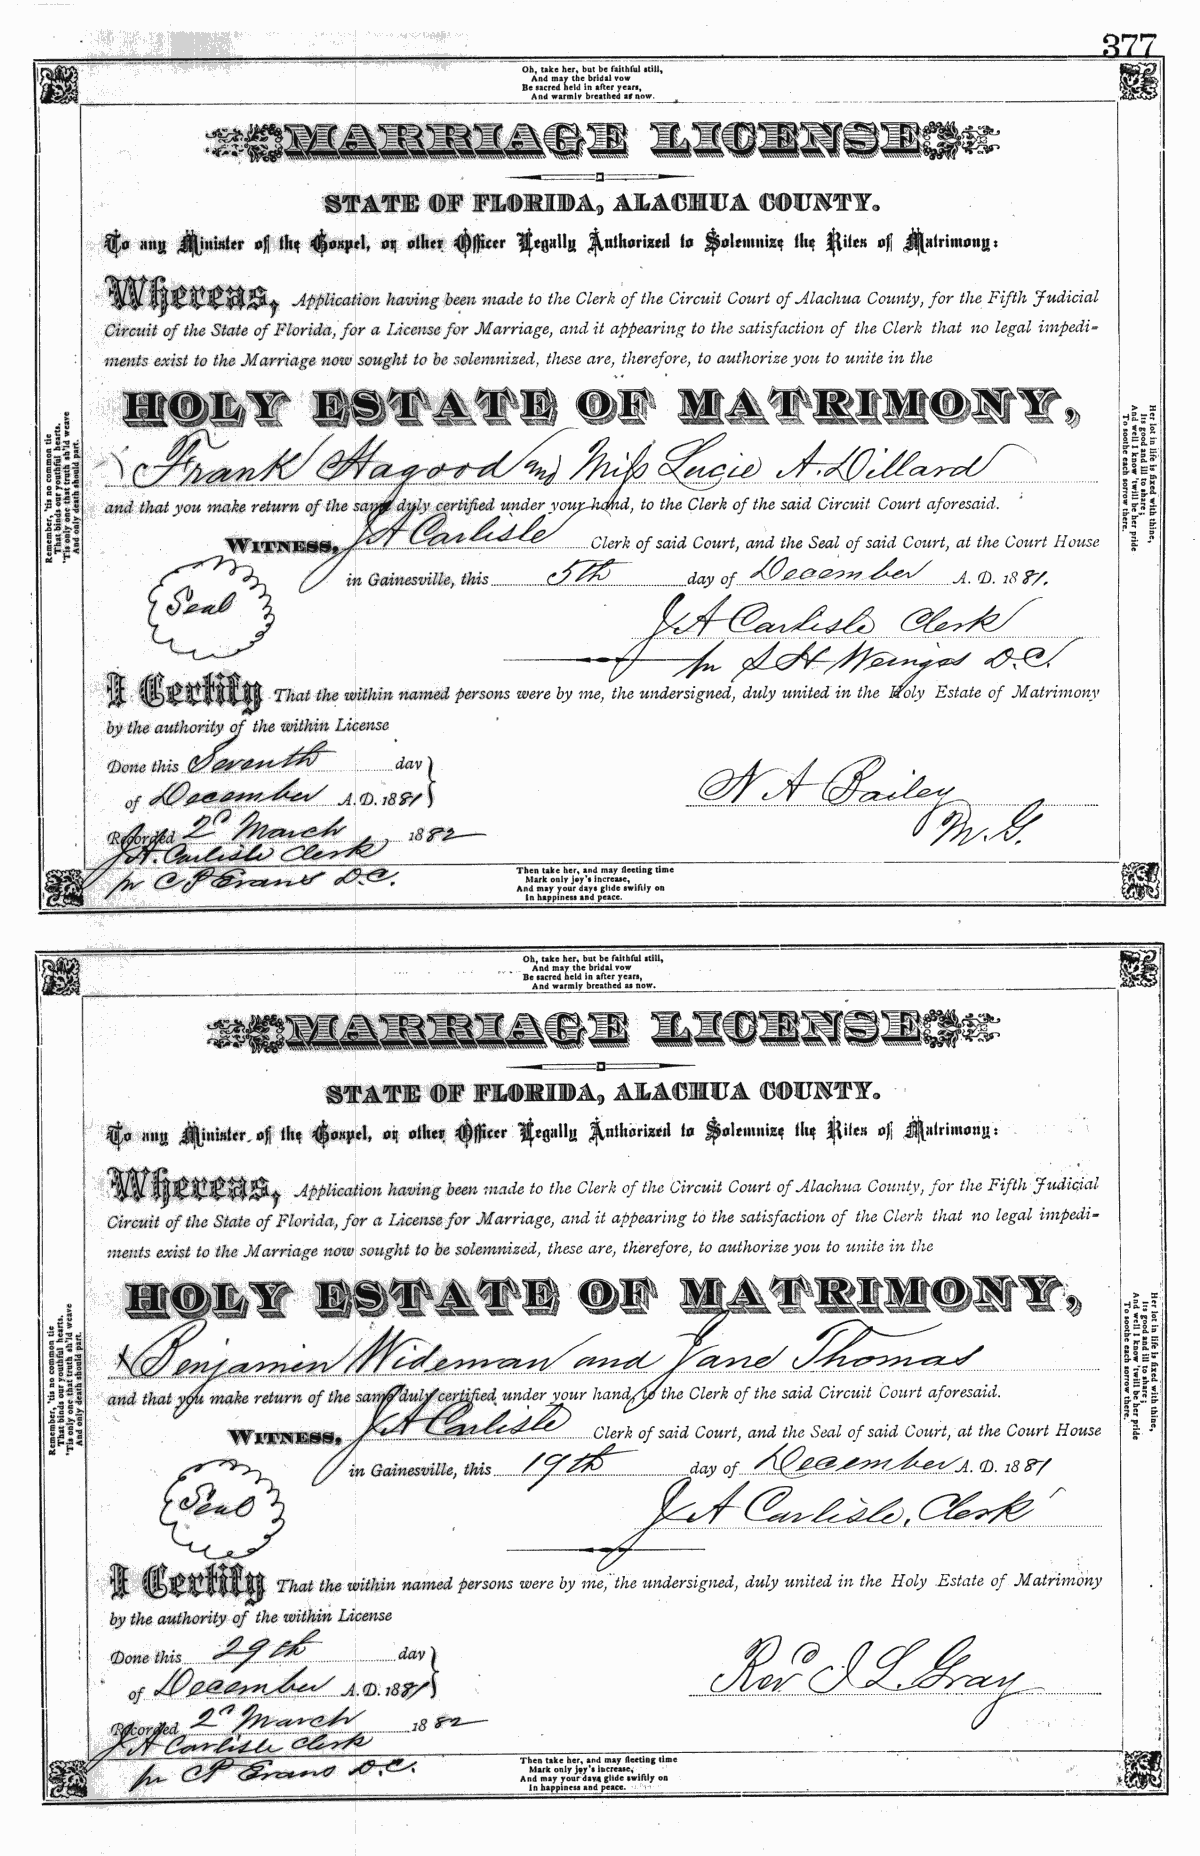 377
Oh, take her, but be faithful still,
And may the bridal vow
Be sacred held in after years,
And warmly breathed as now.
MARRIAGE LICENSE
STATE OF FLORIDA, ALACHUA COUNTY.
To any Minister of the Gospel, or other Officer Legally Authorized to Solemnize the Rites of Matrimony:
Whereas, Application having been made to the Clerk of the Circuit Court of Alachua County, for the Fifth Judicial
Circuit of the State of Florida, for a License for Marriage, and it appearing to the satisfaction of the Clerk that no legal impedi-
ments exist to the Marriage now sought to be solemnized, these are, therefore, to authorize you to unite in the
HOLY ESTATE OF MATRIMONY,
Frank Hagood and Miss Lucie A. Dillard
and that you make return of the same duly certified under your hand, to the Clerk of the said Circuit Court aforesaid.
WITNESS, J A Carlisle Clerk of said Court, and the Seal of said Court, at the Court House
in Gainesville, this 5th day of December A. D. 1881.
Seal
J A Carlisle Clerk
pr S H Weinges D.C.
I Certify That the within named persons were by me, the undersigned, duly united in the Holy Estate of Matrimony
by the authority of the within License
Done this Seventh day
of December A.D. 1881
N A Bailey
M.G.
Recorded 2d March 1882
J.A. Carlisle Clerk
pr C P Evans D.C.
Then take her, and may fleeting time
Mark only joy's increase,
And may your days glide swiftly on
In happiness and peace.
Remember, 'tis no common tie
That binds our youthful hearts,
'Tis only one that truth sh'ld weave
And only death should part.
Her lot in life is fixed with thine,
Its good and ill to share;
And well I know 'twill be her pride
To soothe each sorrow there.
Oh, take her, but be faithful still,
And may the bridal vow
Be sacred held in after years,
And warmly breathed as now.
MARRIAGE LICENSE
STATE OF FLORIDA, ALACHUA COUNTY.
To any Minister of the Gospel, or other Officer Legally Authorized to Solemnize the Rites of Matrimony:
Whereas, Application having been made to the Clerk of the Circuit Court of Alachua County, for the Fifth Judicial
Circuit of the State of Florida, for a License for Marriage, and it appearing to the satisfaction of the Clerk that no legal impedi-
ments exist to the Marriage now sought to be solemnized, these are, therefore, to authorize you to unite in the
HOLY ESTATE OF MATRIMONY,
Benjamin Wideman and Jane Thomas
and that you make return of the same duly certified under your hand, to the Clerk of the said Circuit Court aforesaid.
WITNESS, J A Carlisle Clerk of said Court, and the Seal of said Court, at the Court House
in Gainesville, this 19th day of December A. D. 1881
Seal
J A Carlisle, Clerk
I Certify That the within named persons were by me, the undersigned, duly united in the Holy Estate of Matrimony
by the authority of the within License
Done this 29th day
of December A.D. 1881
Revd I L. Gray
Recorded 2d March 1882
J A Carlisle Clerk
pr C P Evans D.C.
Then take her, and may fleeting time
Mark only joy's increase,
And may your days glide swiftly on
In happiness and peace.
Remember, 'tis no common tie
That binds our youthful hearts.
'Tis only one that truth sh'ld weave
And only death should part.
Her lot in life is fixed with thine,
Its good and ill to share;
And well I know 'twill be her pride
To soothe each sorrow there.